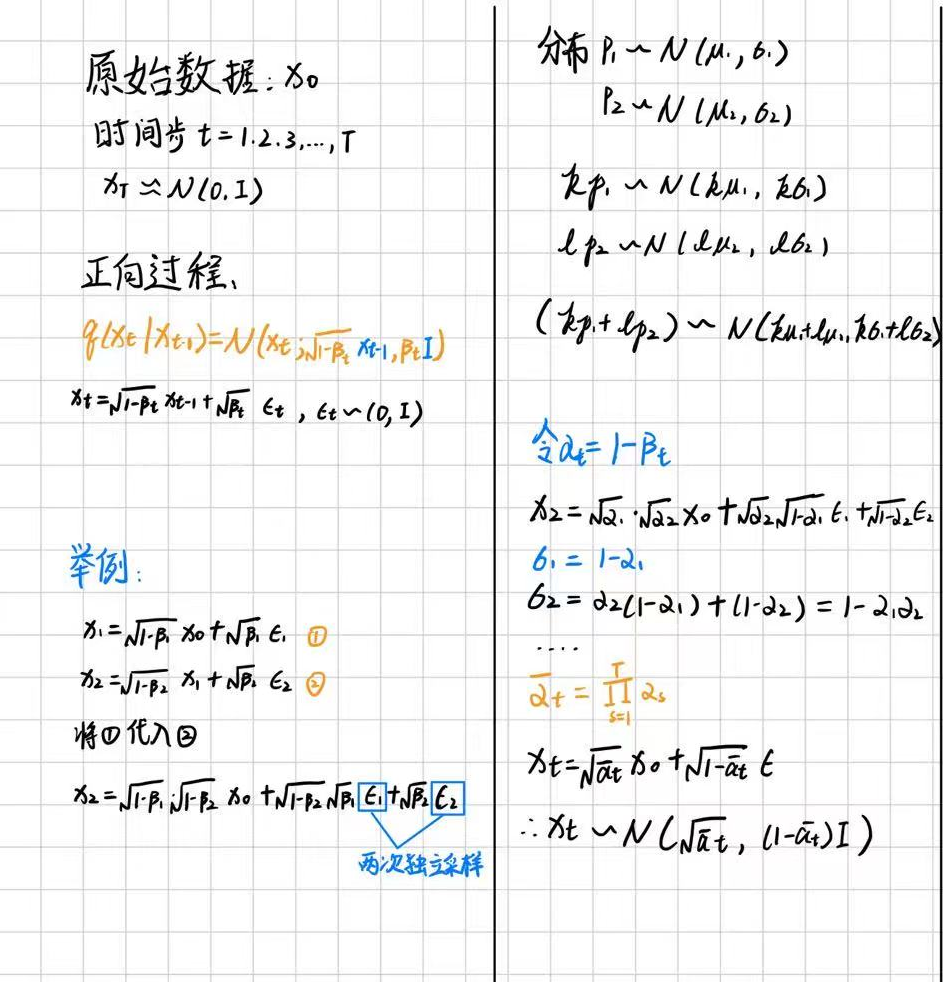 原始数据: x₀
时间步 t=1.2.3,...,T
x_T ≈ N(0.I)
正向过程、
q(x_t|x_{t-1})=N(x_t;√(1-β_t) x_{t-1},β_tI)
x_t=√(1-β_t) x_{t-1}+√β_t ϵ_t , ϵ_t~(0,I)
举例:
x₁=√(1-β₁) x₀+√β₁ ϵ₁ ①
x₂=√(1-β₂) x₁+√β₂ ϵ₂ ②
将①代入②
x₂=√(1-β₁)·√(1-β₂) x₀+√(1-β₂)√β₁ ϵ₁+√β₂ ϵ₂
两次独立采样
分布 P₁~N(μ₁,σ₁)
P₂~N(μ₂,σ₂)
kp₁~N(kμ₁, kσ₁)
lp₂~N(lμ₂, lσ₂)
(kp₁+lp₂)~N(kμ₁+lμ₁,kσ₁+lσ₂)
令α_t=1-β_t
x₂=√α₁·√α₂x₀+√α₂√(1-α₁) ϵ₁+√(1-α₂)ϵ₂
σ₁=1-α₁
σ₂=α₂(1-α₁)+(1-α₂)=1-α₁α₂
....
ᾱ_t=∏_{s=1}^{T} α_s
x_t=√ᾱ_t x₀+√(1-ᾱ_t) ϵ
∴x_t~N(√ᾱ_t, (1-ᾱ_t)I)